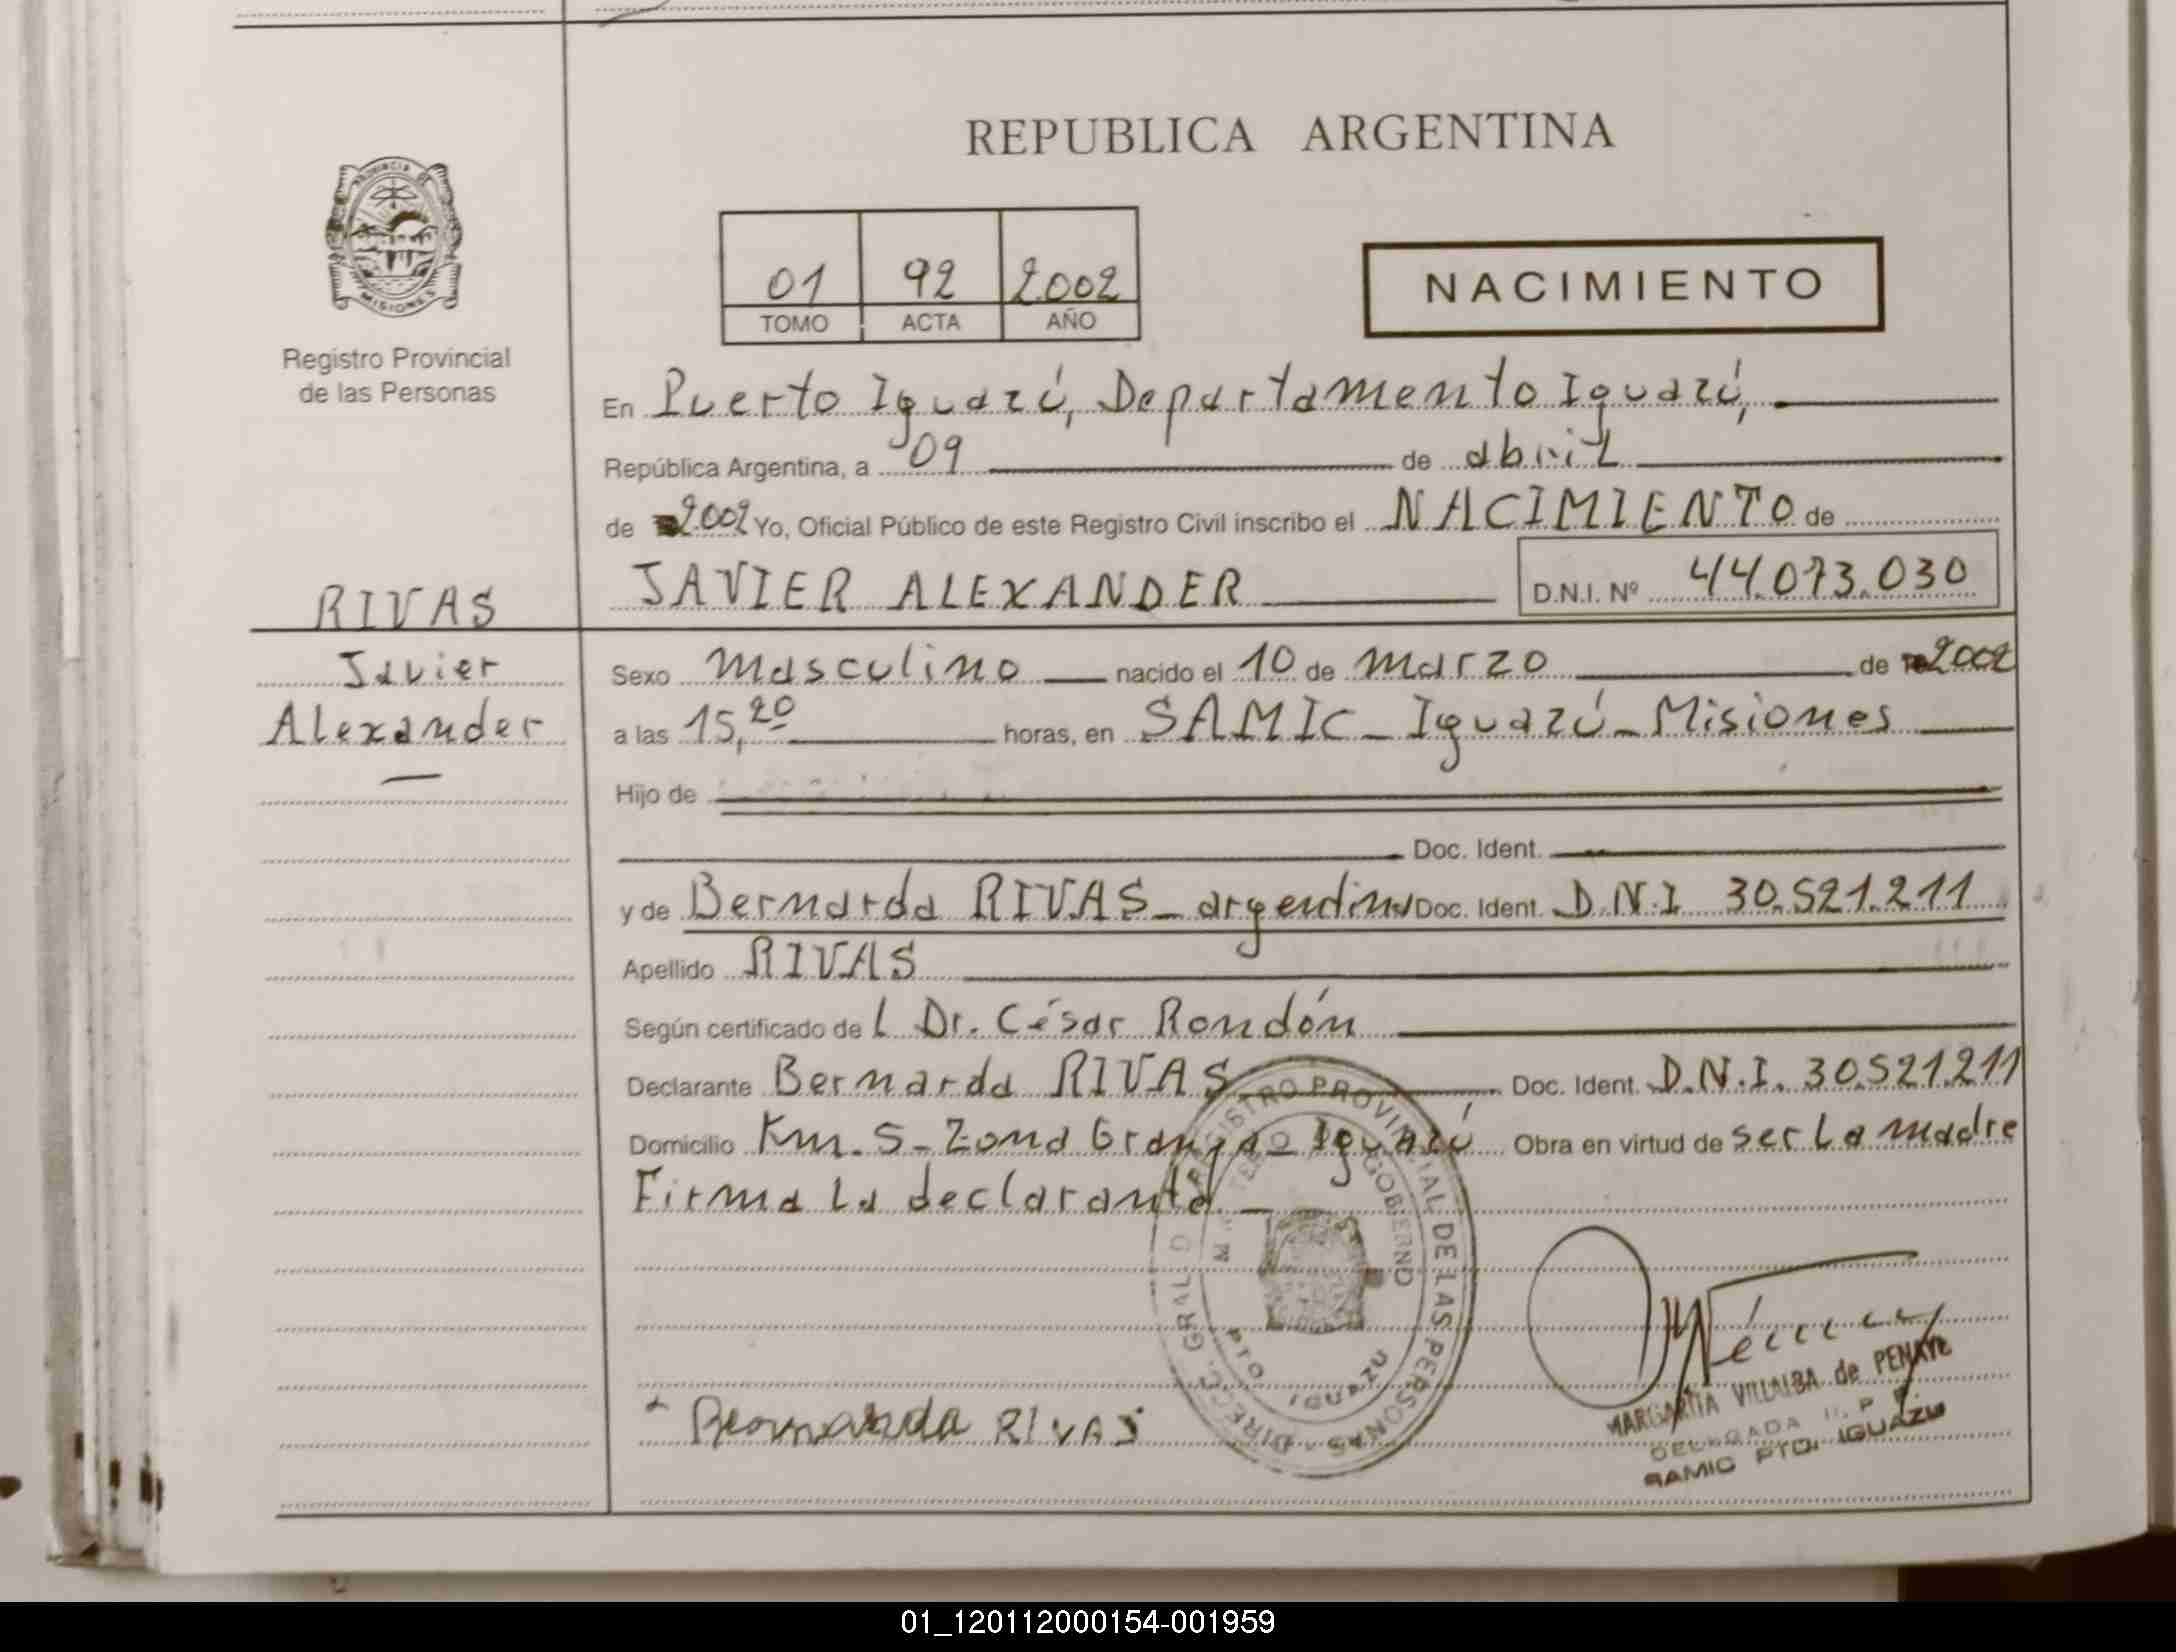 REPUBLICA ARGENTINA
PROVINCIA DE MISIONES
Registro Provincial
de las Personas
01 92 2002
TOMO ACTA AÑO
NACIMIENTO
En Puerto Iguazú, Departamento Iguazú,
República Argentina, a 09 de abril
de 2002 Yo, Oficial Público de este Registro Civil inscribo el NACIMIENTO de
JAVIER ALEXANDER D.N.I. Nº 44.073.030
RIVAS
Javier
Alexander
Sexo masculino nacido el 10 de marzo de 2002
a las 15,20 horas, en SAMIC - Iguazú - Misiones
Hijo de
Doc. Ident.
y de Bernarda RIVAS - argentina Doc. Ident. D.N.I 30.521.211
Apellido RIVAS
Según certificado del Dr. César Rondón
Declarante Bernarda RIVAS Doc. Ident. D.N.I. 30.521.211
Domicilio Km. 5 - Zona Granja - Iguazú Obra en virtud de ser la madre
Firma la declarante
REGISTRO PROVINCIAL DE LAS PERSONAS - DIRECC. GRAL
GOBIERNO
PTO IGUAZU
Bernarda RIVAS
MARGARITA VILLALBA de
DELEGADA
SAMIC PTO. IGUAZU
01_120112000154-001959